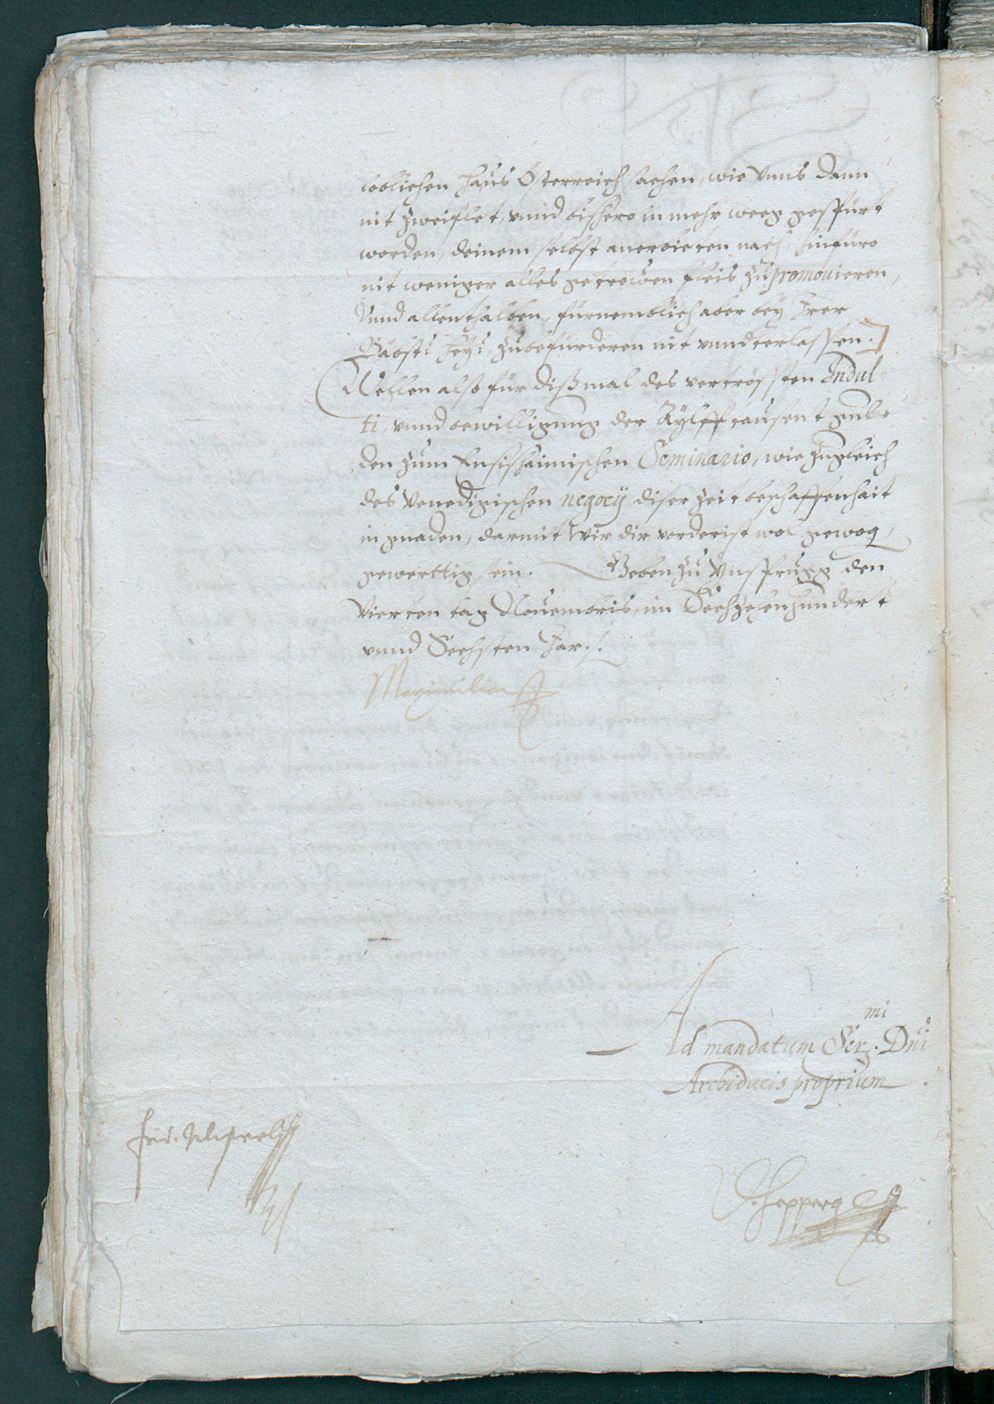 loblichen Haus Österreich sachen, wie vnns dann
nit zweiflet, vnnd bisshero in mehr weeg gespürt
worden, deinem selbst anerbieten nach, hinfüro
nit weniger alles getrewen fleis zu promouieren,
Vnnd allenthalben, fürnemblich aber bey Irer
Bäbstl: Heyl: zubefürderen nit vnnderlassen.
Wellen also für dißmal des vertrösten Indul
ti, vnnd bewilligung der Aylff tausent gulde
den zum Ensishaimischen Seminario, wie zugleich
des Venedigischen negocij diser Zeit beschaffenhait
in gnaden, darmit Wir dir vorderist wol gewog,
gewerttig sein. Geben zu Ynsprugg den
Vierten tag Nouembris, im Sechzehenhundert
vnnd Sechsten Jar./.
Maximilian
Ad mandatum Ser.mi Dni
Archiducis proprium